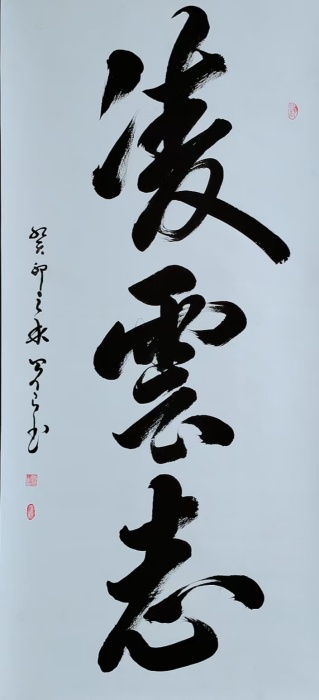 凌雲志
癸卯之秋